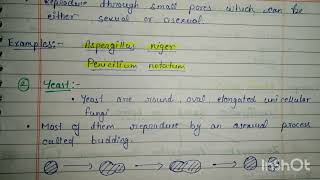 Reproduce through small pores which can be
either sexual or asexual.
Examples:- Aspergillus niger
Penicillium notatum
② Yeast:-
• Yeast are round, oval elongated unicellular
fungi
• Most of them reproduce by an asexual process
called budding.
InShOt